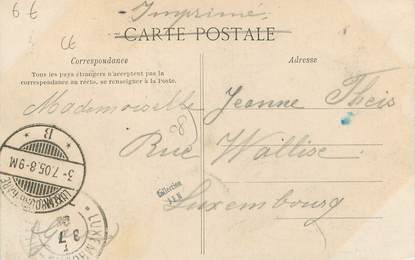 6 €
Imprimé
CARTE POSTALE
Correspondance
Adresse
Tous les pays étrangers n'acceptent pas la
correspondance au recto, se renseigner à la Poste.
Mademoiselle Jeanne Theis
Rue Wallise
Luxembourg
Collection
B
3-7.05.8-9M
LUXEMBOURG-GARE
3 7
LUXEMBOURG